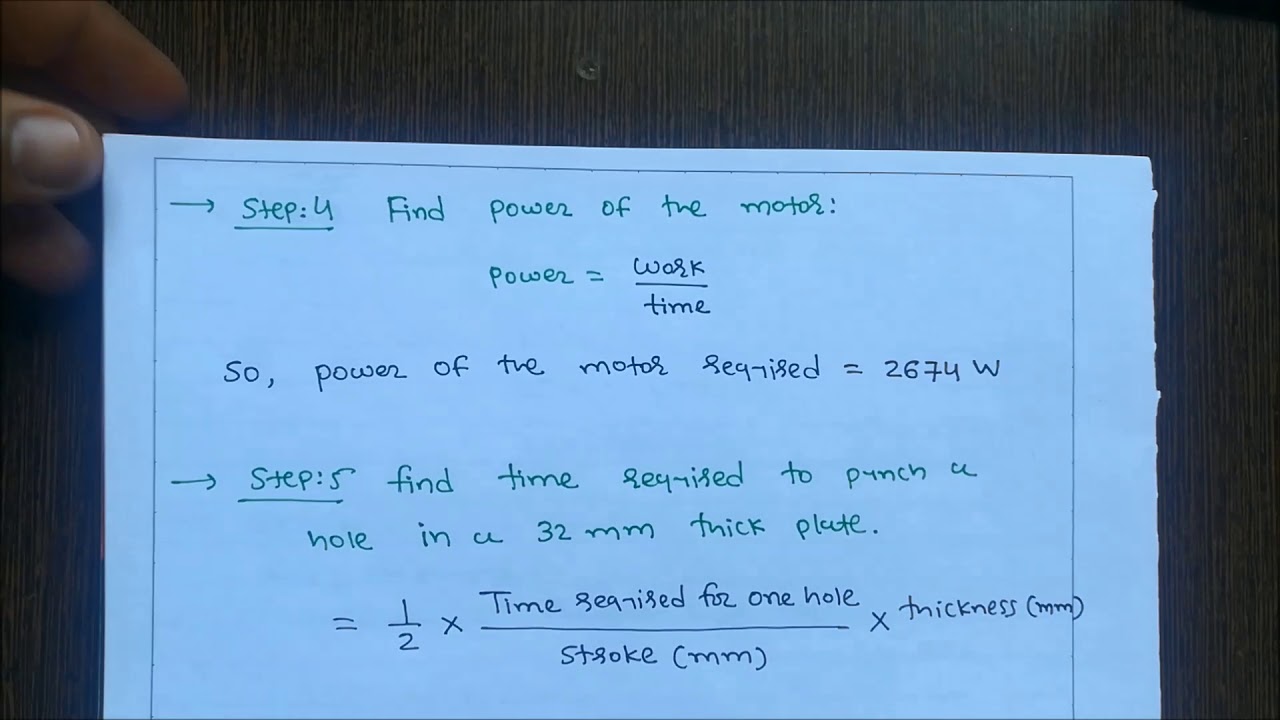 → Step:4 Find power of the motor:
power = work / time
So, power of the motor required = 2674 W
→ Step:5 find time required to punch a
hole in a 32 mm thick plate.
= 1/2 × Time required for one hole / stroke (mm) × thickness (mm)